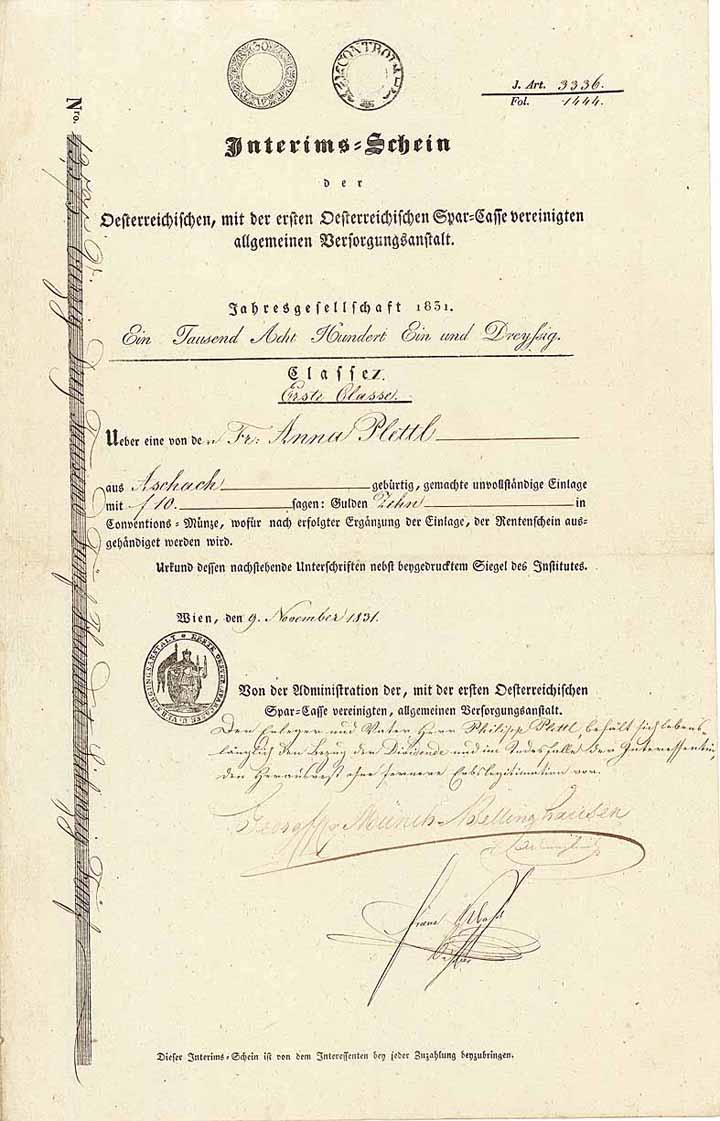 CONTROLLE
J. Art. 3336.
Fol. 1444.
Nro.
Interims-Schein
der
Oesterreichischen, mit der ersten Oesterreichischen Spar-Casse vereinigten
allgemeinen Versorgungsanstalt.
Jahresgesellschaft 1831.
Ein Tausend Acht Hundert Ein und Dreyßig.
Classe I.
Erste Classe.
Ueber eine von der Fr: Anna Plettl
aus Aschach gebürtig, gemachte unvollständige Einlage
mit f 10. sagen: Gulden Zehn in
Conventions-Münze, wofür nach erfolgter Ergänzung der Einlage, der Rentenschein aus-
gehändiget werden wird.
Urkund dessen nachstehende Unterschriften nebst beygedrucktem Siegel des Institutes.
Wien, den 9. November 1831.
Von der Administration der, mit der ersten Oesterreichischen
Spar-Casse vereinigten, allgemeinen Versorgungsanstalt.
Den Erleger und Vater Herr Philipp Plettl, behält sich lebens-
länglich den Bezug der Dividende und im Todesfalle der Interessentin,
den Herausrest ohne fernere Erbslegitimation vor.
Münch-Bellinghausen
Dieser Interims-Schein ist von dem Interessenten bey jeder Zuzahlung beyzubringen.